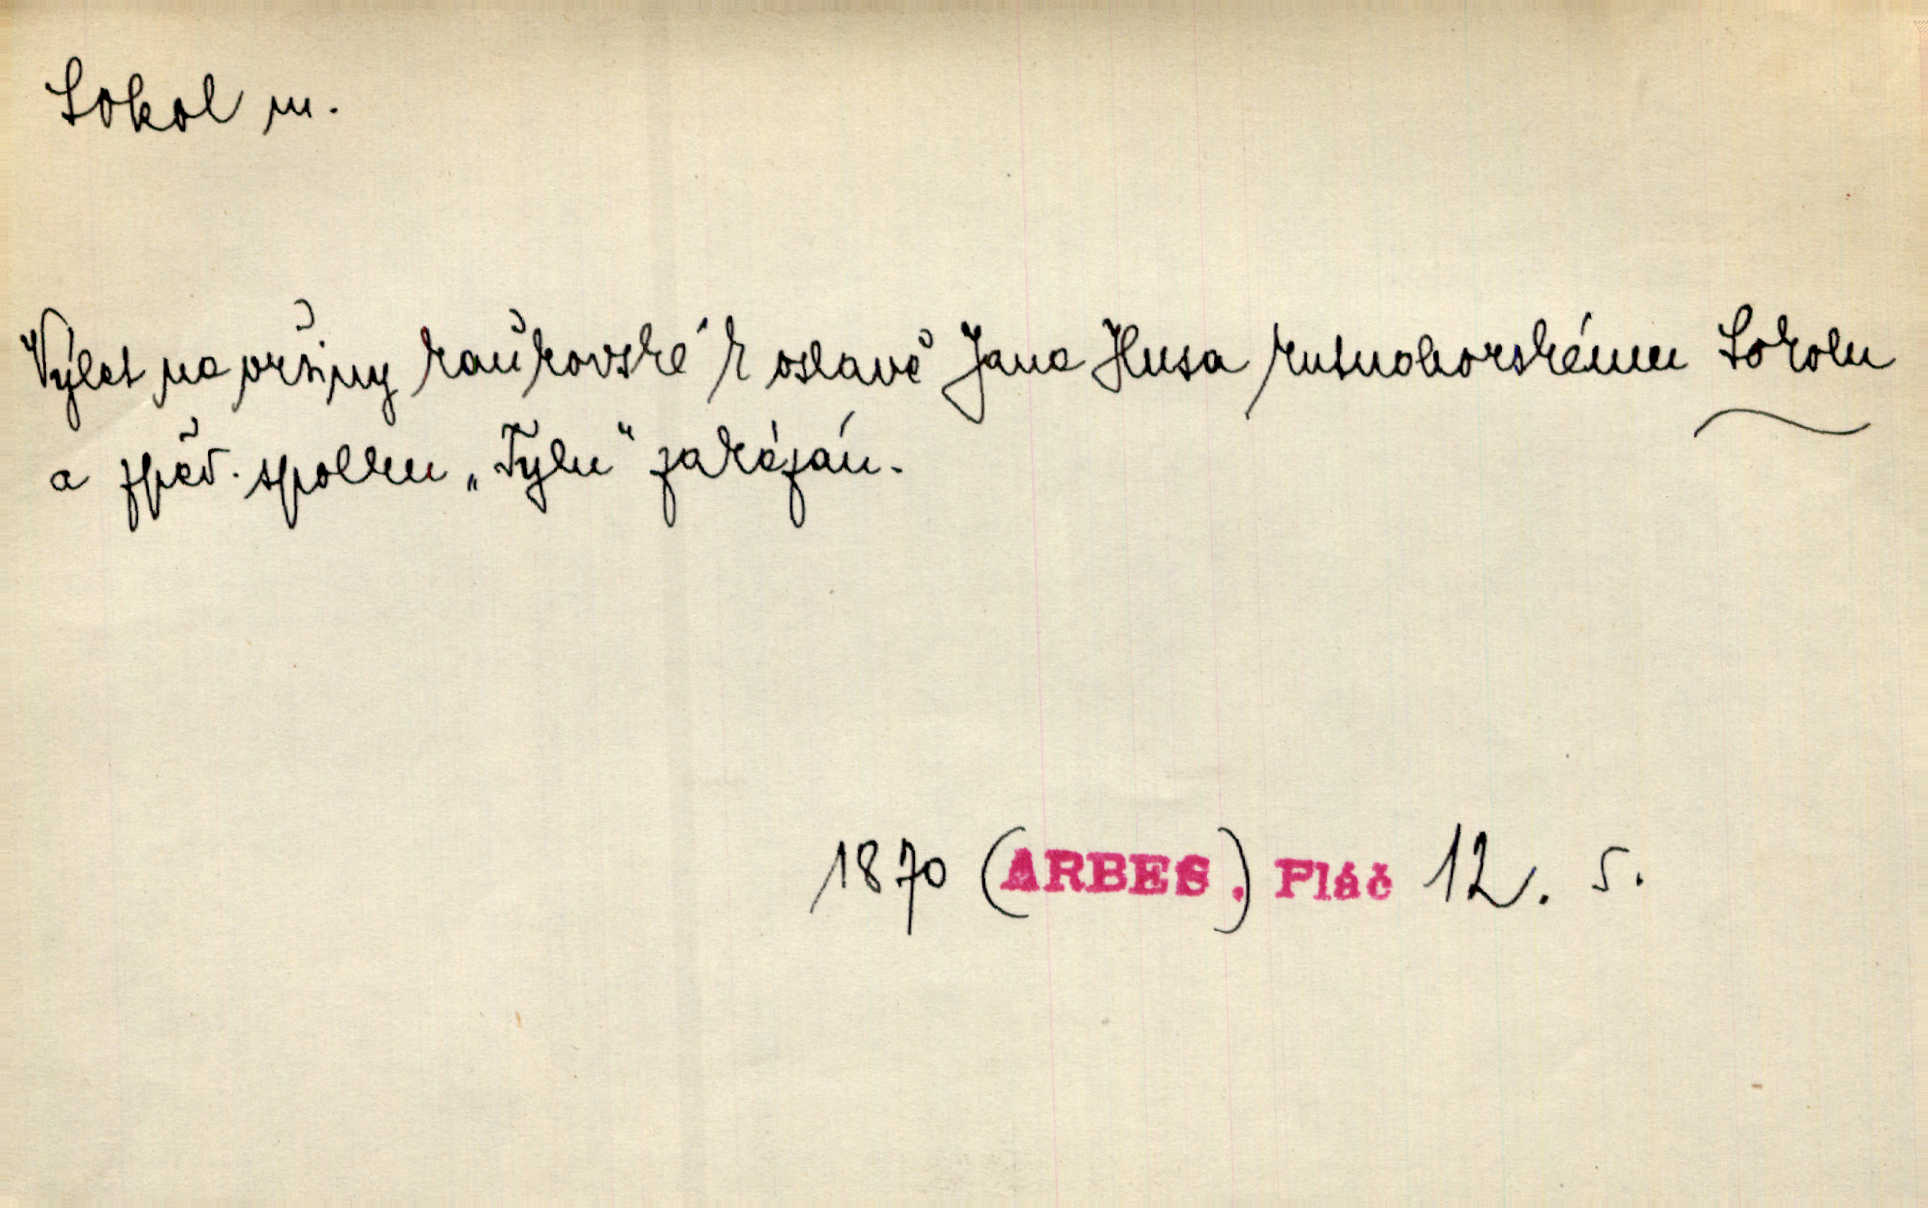 Sokol m.
Výlet na vršiny kaňkovské k oslavě Jana Husa kutnohorskému Sokolu
a zpěv. spolku „Tylu“ zakázán.
1870 (ARBES.) Pláč 12. 5.